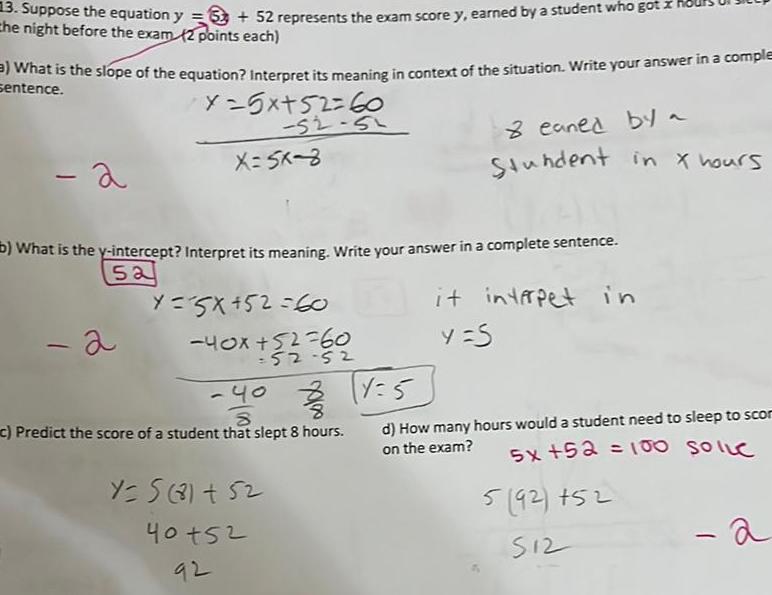 13. Suppose the equation y = 5x + 52 represents the exam score y, earned by a student who got x hours of sleep
the night before the exam. (2 points each)
a) What is the slope of the equation? Interpret its meaning in context of the situation. Write your answer in a comple
sentence.
y = 5x + 52 = 60
-52 -52
x = 5x - 8
8 eaned by a
Stuhdent in x hours
- 2
b) What is the y-intercept? Interpret its meaning. Write your answer in a complete sentence.
52
y = 5x + 52 = 60
it interpet in
-40x + 52 = 60
y = 5
- 52 - 52
- 2
-40 8 y = 5
8 8
c) Predict the score of a student that slept 8 hours.
d) How many hours would a student need to sleep to scor
on the exam?
5x + 52 = 100 solve
y = 5(8) + 52
5(92) + 52
40 + 52
512
- 2
92